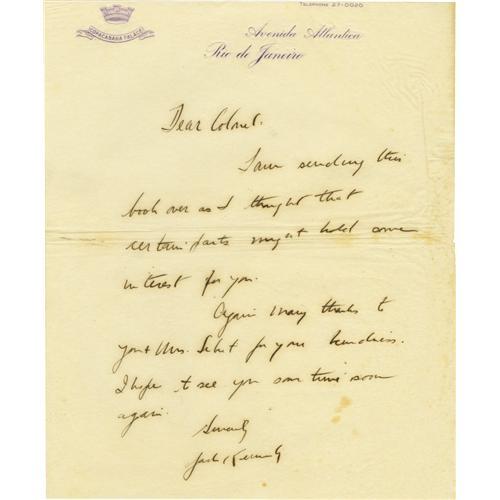 TELEPHONE 27-0020
COPACABANA PALACE
Avenida Atlantica
Rio de Janeiro
Dear Colonel.
I am sending this
book over as I thought that
certain parts might hold some
interest for you.
Again many thanks to
you + Mrs. for your kindness.
I hope to see you some time soon
again.
Sincerely
Jack Kennedy